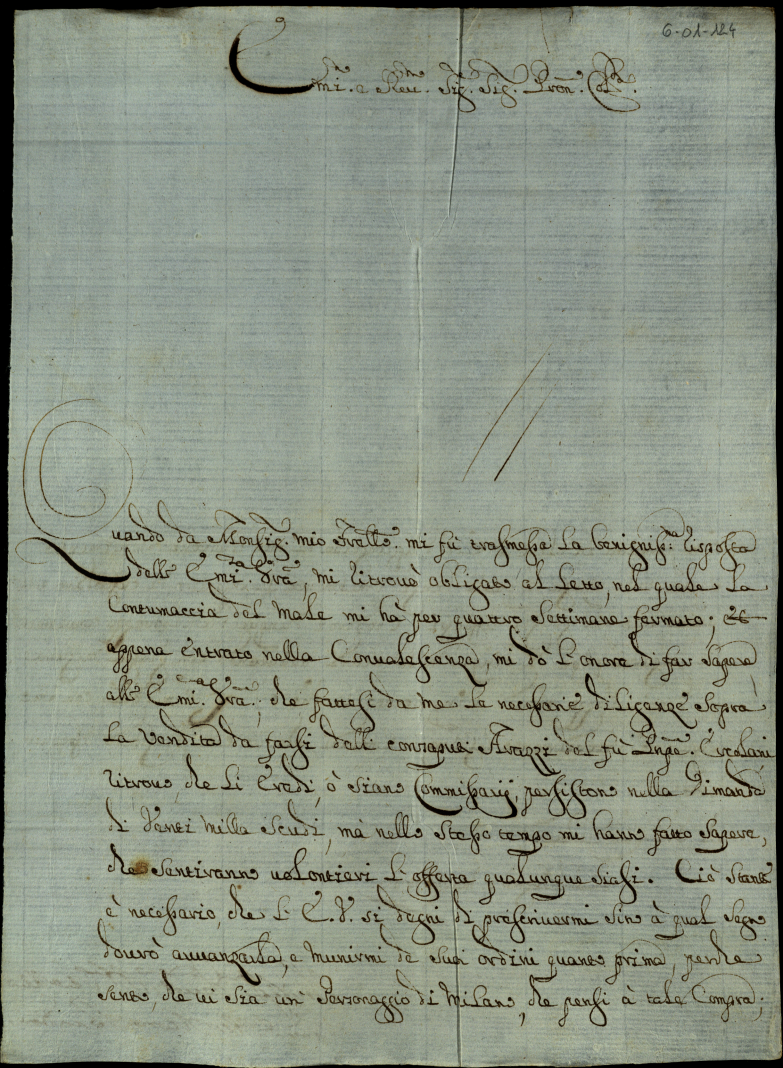 6-01-124
Emi.mo e Reu.mo Sig. Sig. Pron. Col.mo
Quando da Monsig. mio Fratello. mi fù trasmessa la benigniss.a risposta
dell' Emi.za V.ra, mi ritrouò obligato al Letto, nel quale La
Contumaccia del Male mi hà per quattro Settimane fermato; et
appena entrato nella Conualescenza, mi dò l'onore di far Sapere
all' Emi.za V.ra; che fattesi da me le necessarie diligenze Sopra
La Vendita da farsi delli consaputi Arazzi del fù Pnpe. Ercolani
ritrouo, che li Eredi, ò siano Commissarij, persistono nella Dimanda
di Venti Milla Scudi, mà nello Stesso tempo mi hanno fatto Sapere,
che Sentiranno uolontieri L'offerta qualunque siasi. Ciò Stante
è necessario, che L' E. V. si degni di prescriuermi sino à qual Segno
dourò auuanzarla, e Munirmi de Suoi ordini quanto prima, perche
sento, che ui sia un' Personaggio di Milano, che pensi à tale Compra;